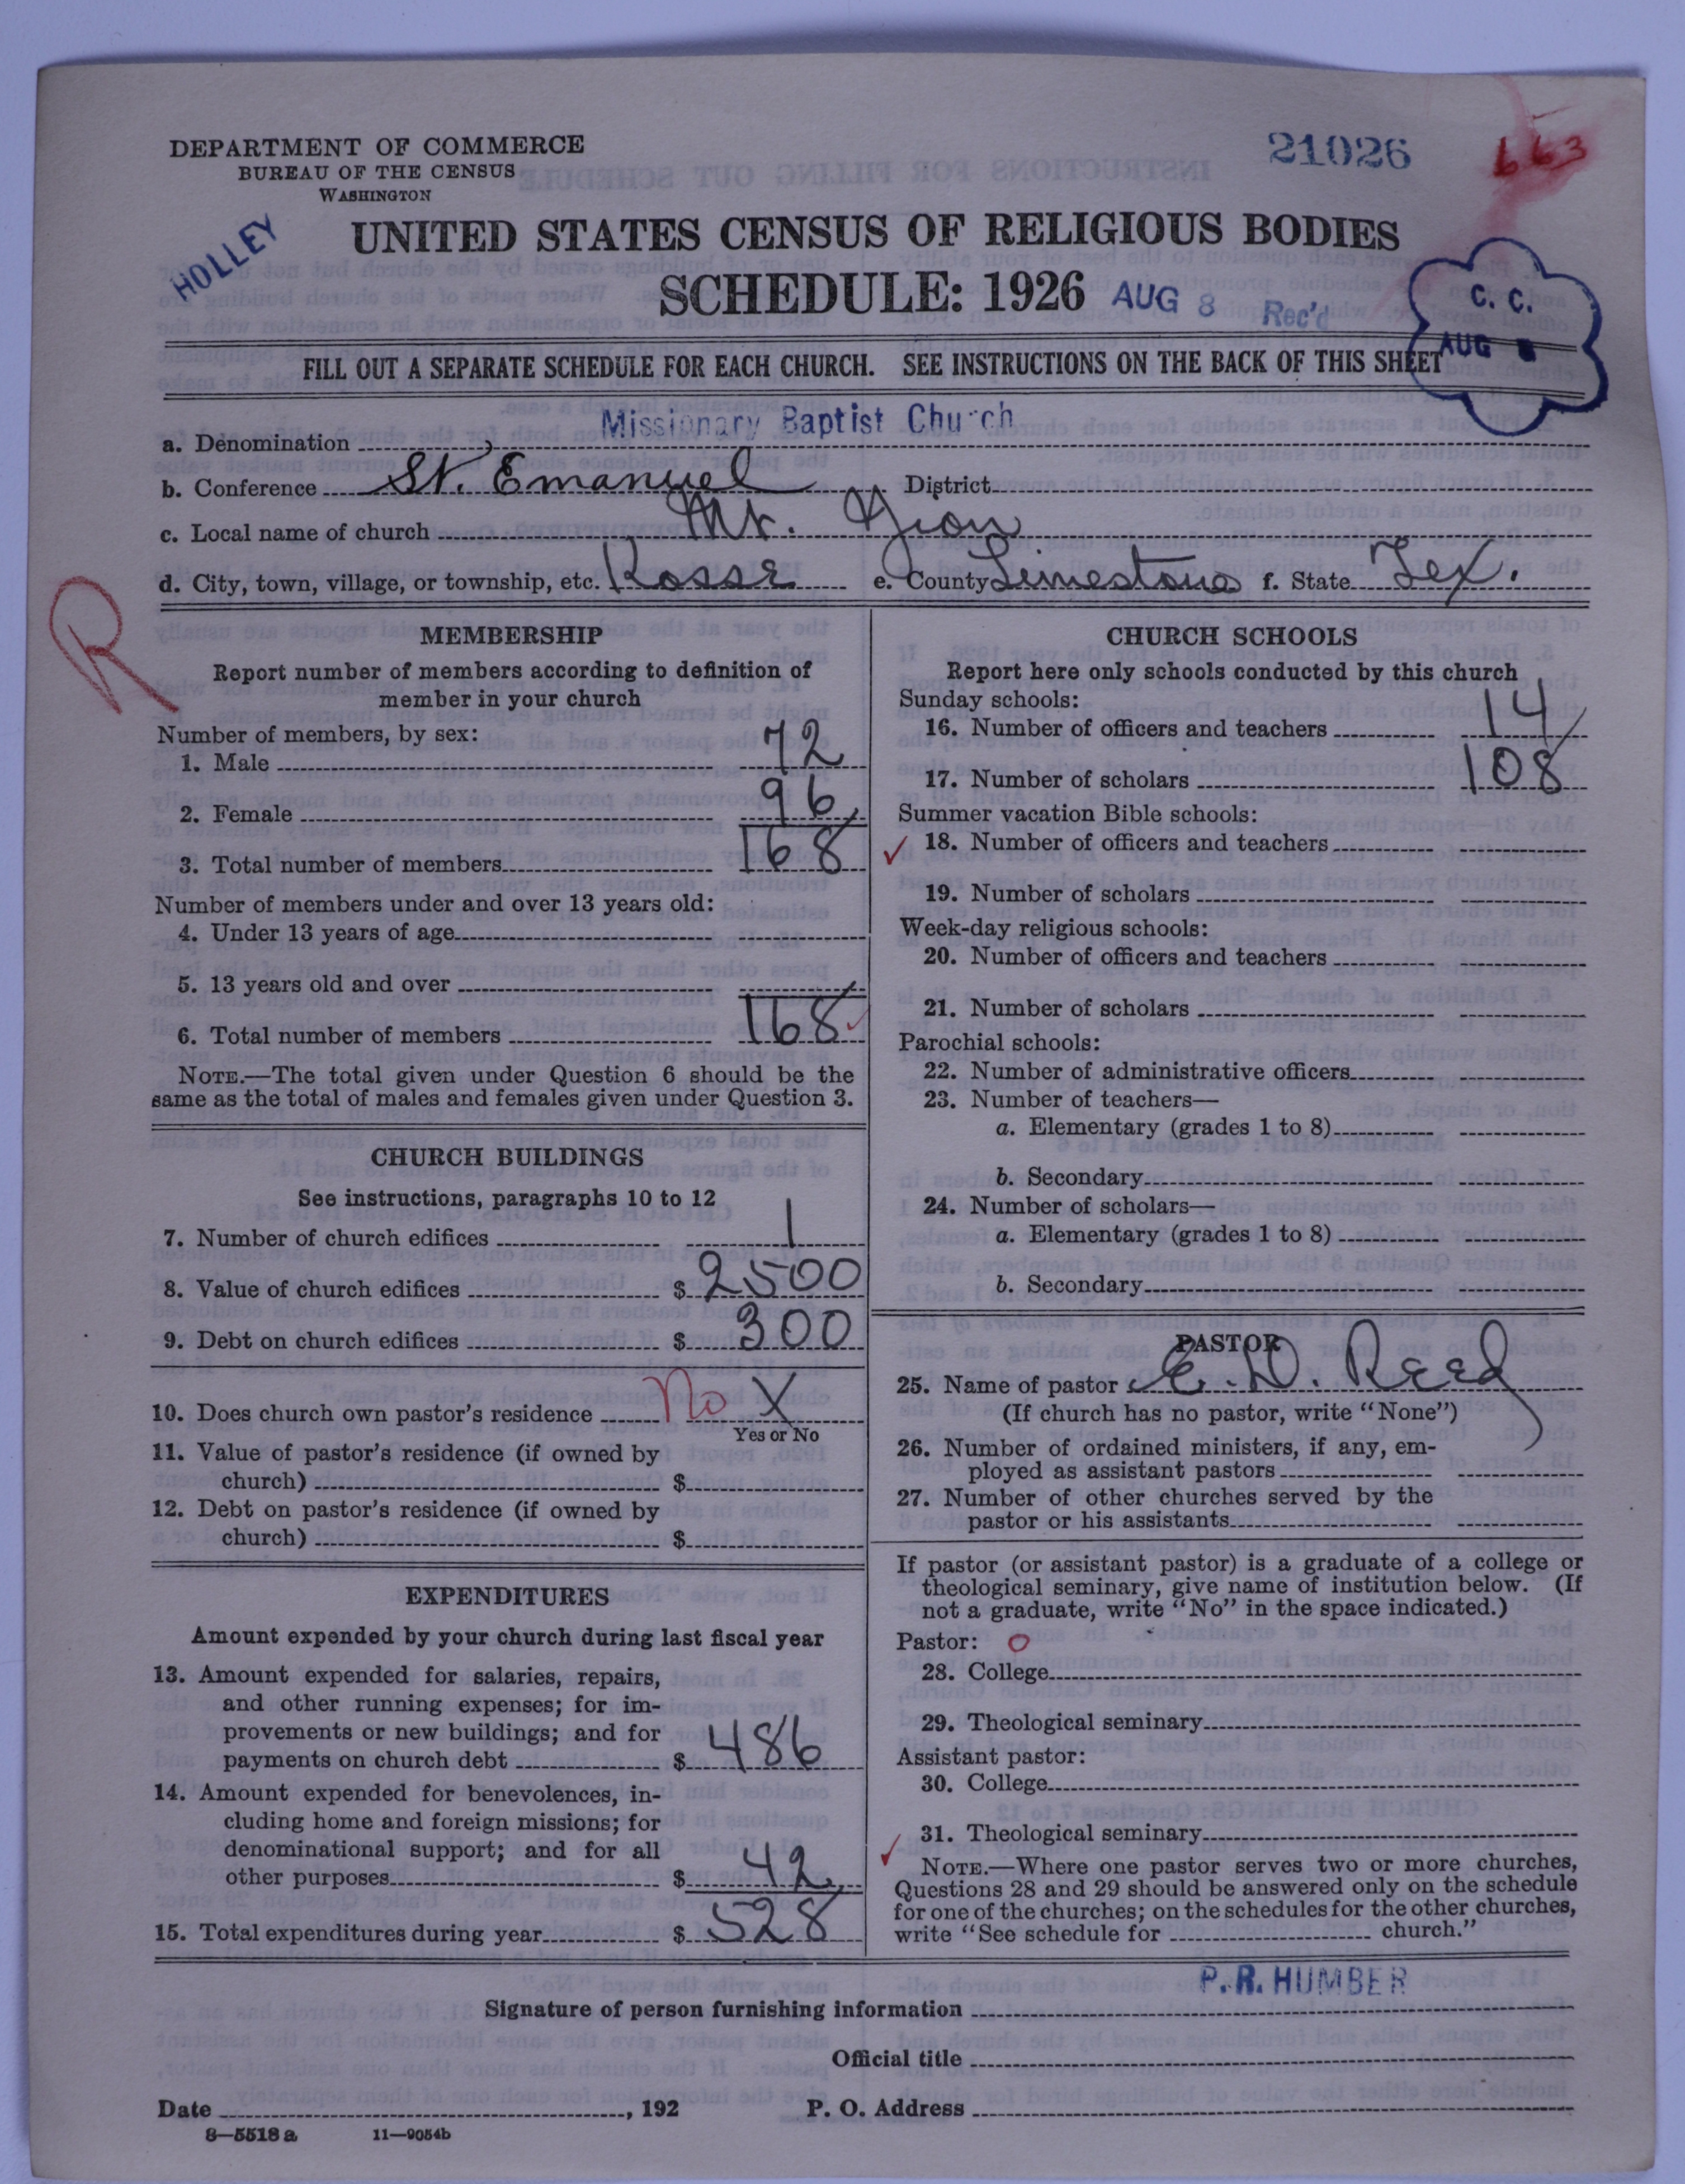 DEPARTMENT OF COMMERCE
BUREAU OF THE CENSUS
WASHINGTON
21026
663
HOLLEY
UNITED STATES CENSUS OF RELIGIOUS BODIES
SCHEDULE: 1926 AUG 8 Rec'd
C. C.
AUG 8
FILL OUT A SEPARATE SCHEDULE FOR EACH CHURCH. SEE INSTRUCTIONS ON THE BACK OF THIS SHEET
a. Denomination Missionary Baptist Church
b. Conference St. Emanuel District
c. Local name of church Mt. Zion
d. City, town, village, or township, etc. Kosse e. County Limestone f. State Tex.
R
MEMBERSHIP
Report number of members according to definition of
member in your church
Number of members, by sex:
1. Male 72
2. Female 96
3. Total number of members 168
Number of members under and over 13 years old:
4. Under 13 years of age
5. 13 years old and over
6. Total number of members 168
NOTE.—The total given under Question 6 should be the
same as the total of males and females given under Question 3.
CHURCH BUILDINGS
See instructions, paragraphs 10 to 12
7. Number of church edifices 1
8. Value of church edifices $ 2500
9. Debt on church edifices $ 300
10. Does church own pastor's residence No X
Yes or No
11. Value of pastor's residence (if owned by
church) $
12. Debt on pastor's residence (if owned by
church) $
EXPENDITURES
Amount expended by your church during last fiscal year
13. Amount expended for salaries, repairs,
and other running expenses; for im-
provements or new buildings; and for
payments on church debt $ 486
14. Amount expended for benevolences, in-
cluding home and foreign missions; for
denominational support; and for all
other purposes $ 42
15. Total expenditures during year $ 528
CHURCH SCHOOLS
Report here only schools conducted by this church
Sunday schools:
16. Number of officers and teachers 14
17. Number of scholars 108
Summer vacation Bible schools:
18. Number of officers and teachers
19. Number of scholars
Week-day religious schools:
20. Number of officers and teachers
21. Number of scholars
Parochial schools:
22. Number of administrative officers
23. Number of teachers—
a. Elementary (grades 1 to 8)
b. Secondary
24. Number of scholars—
a. Elementary (grades 1 to 8)
b. Secondary
PASTOR
25. Name of pastor E. D. Reed
(If church has no pastor, write "None")
26. Number of ordained ministers, if any, em-
ployed as assistant pastors
27. Number of other churches served by the
pastor or his assistants
If pastor (or assistant pastor) is a graduate of a college or
theological seminary, give name of institution below. (If
not a graduate, write "No" in the space indicated.)
Pastor: O
28. College
29. Theological seminary
Assistant pastor:
30. College
31. Theological seminary
NOTE.—Where one pastor serves two or more churches,
Questions 28 and 29 should be answered only on the schedule
for one of the churches; on the schedules for the other churches,
write "See schedule for church."
P. R. HUMBER
Signature of person furnishing information
Official title
Date , 192 P. O. Address
8—5518a 11—9054b